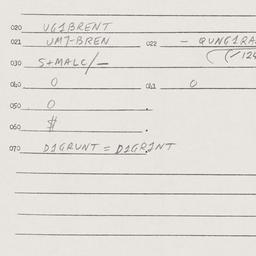 020 UG1BRENT
021 UM7-BREN 022 - QUNG1RA
(/124
030 S+MALC/-
040 0 041 0
050 0 .
060 $ .
070 D1GRUNT = D1GRJNT